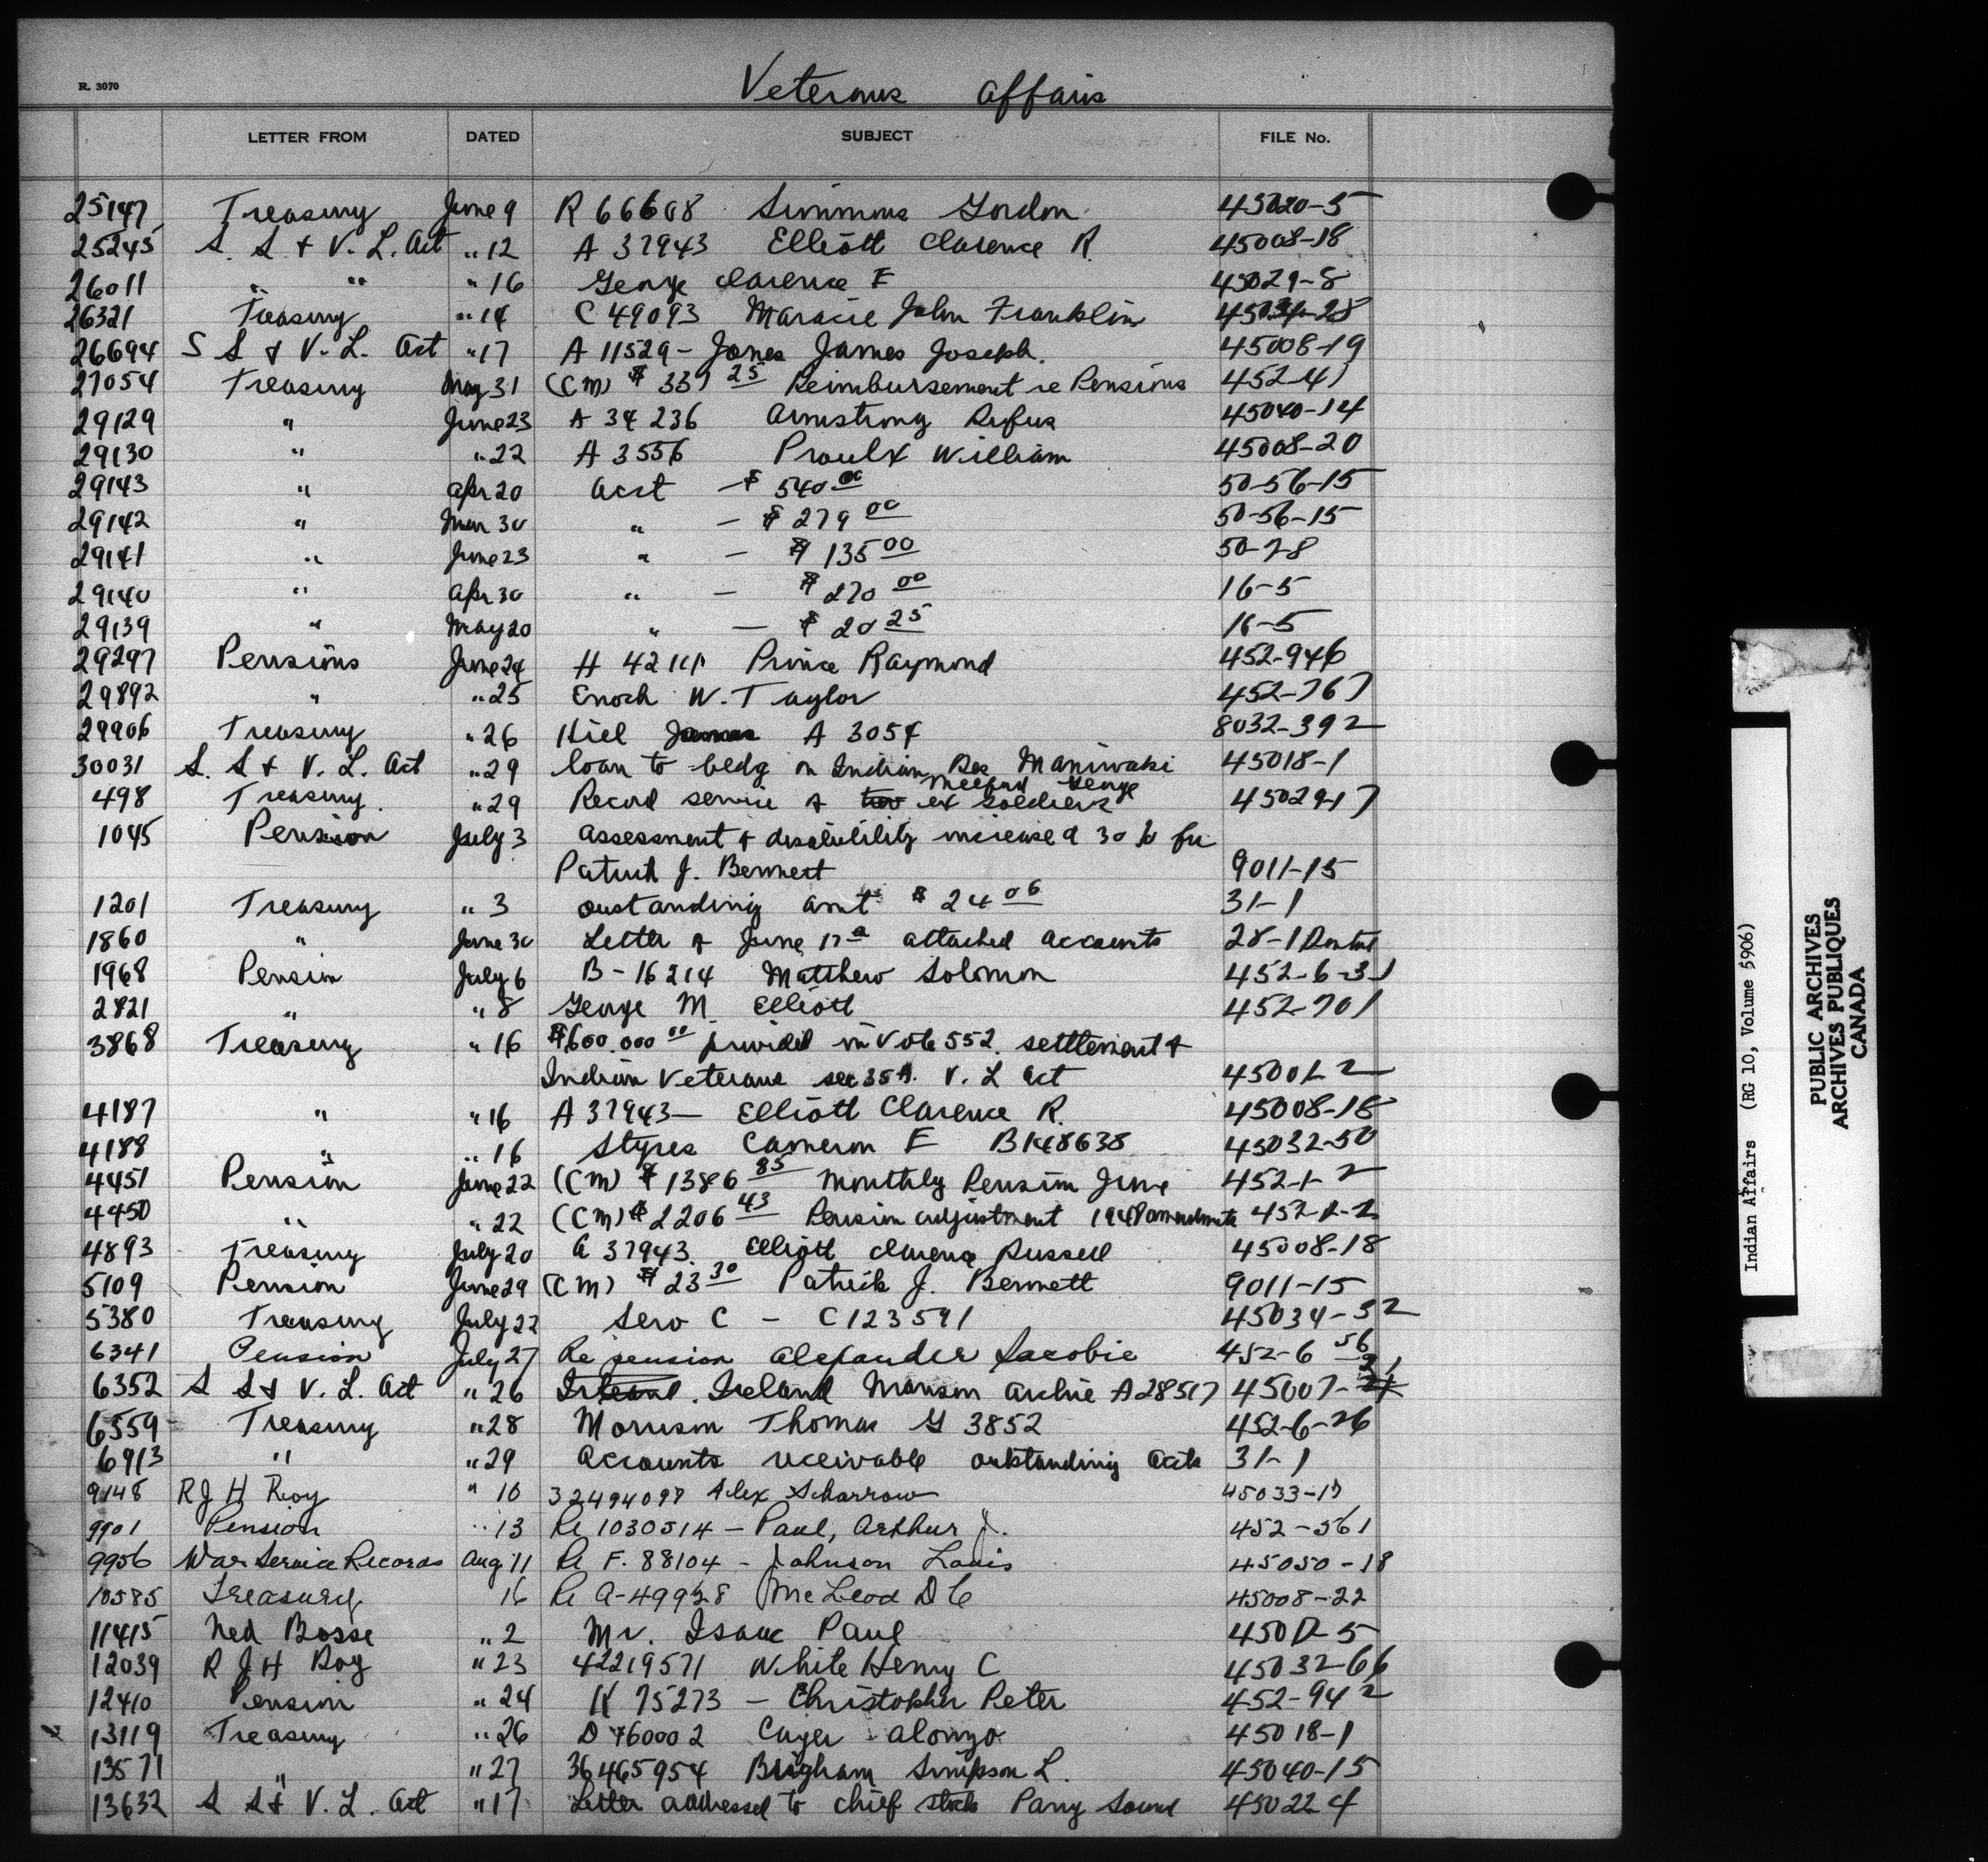 R. 3070
Veterans affairs
LETTER FROM DATED SUBJECT FILE No.
25147 Treasury June 9 R 66608 Simmons Gordon 45020-5
25245 S. S & V. L. Act " 12 A 37943 Elliott Clarence R. 45008-18
26011 " " " 16 George Clarence E 45029-8
26321 Treasury " 14 C 49093 Maracle John Franklin 45034-28
26694 S S & V. L. Act " 17 A 11529 - Jones James Joseph. 45008-19
27054 Treasury May 31 (CM) $ 337 25 Reimbursement re Pensions 452-41
29129 " June 23 A 34236 Armstrong Rufus 45040-14
29130 " " 22 A 3556 Proulx William 45008-20
29143 " Apr 20 acct - $ 540 00 50-56-15
29142 " Mar 30 " - $ 279 00 50-56-15
29141 " June 23 " - $ 135 00 50-7-8
29140 " Apr 30 " - $ 270 00 16-5
29139 " May 20 " - $ 20 25 16-5
29297 Pensions June 24 H Prince Raymond 452-946
29892 " " 25 Enoch W. Taylor 452-767
29906 Treasury " 26 Hiel James A 3054 8032-392
30031 S. S & V. L. Act " 29 loan to bldg on Indian Res Maniwaki 45018-1
498 Treasury. " 29 Record service of ex soldiers George 45029-17
1045 Pension July 3 assessment of disability increased 30% for
Patrick J. Bennett 9011-15
1201 Treasury " 3 oustanding amt $ 24 06 31-1
1860 " June 30 Letter of June 17 attached accounts 28-1 Dental
1968 Pension July 6 B-16214 Matthew Solomon 452-6-31
2821 " " 8 George M. Elliott 452-701
3868 Treasury " 16 $600.000 00 provided in Vote 552. settlement of
Indian Veterans sec 35A. V. L Act 45001-2
4187 " " 16 A 37943 - Elliott Clarence R. 45008-18
4188 " " 16 Styres Cameron E B148638 45032-50
4451 Pension June 22 (CM) $ 1386 85 monthly Pension June 452-1-2
4450 " " 22 (CM) $ 2206 43 Pension adjustment 1948 amendments 452-1-2
4893 Treasury July 20 A 37943. Elliott Clarence Russell 45008-18
5109 Pension June 29 (CM) $ 23 30 Patrick J. Bennett 9011-15
5380 Treasury July 22 Sero C - C123591 45034-32
6341 Pension July 27 Re pension Alexander Jacobie 452-6 56
6352 S S & V. L. Act " 26 Ireland Manson Archie A28517 45007-21
6559 Treasury " 28 Morrison Thomas G 3852 452-6-26
6913 " " 29 Accounts receivable outstanding accts 31-1
9148 R J H Roy " 10 32494097 Alex Scharrow 45033-17
9901 Pension " 13 Re 1030514 - Paul, Arthur J. 452-561
9956 War Service Records Aug 11 Re F. 88104 - Johnson Louis 45050-18
10585 Treasury 16 Re A-49928 McLeod D C 45008-22
11415 Ned Bosse " 2 Mr. Isaac Paul 45012-5
12039 R J H Roy " 23 42219571 White Henry C 45032-66
12410 Pension " 24 K 75273 - Christopher Peter 452-942
13119 Treasury " 26 D 760002 Cayer Alonzo 45018-1
13571 " " 27 36465954 Brigham Simpson L. 45040-15
13632 S S & V. L. Act " 17 Letter addressed to chief Parry Sound 45022-4
Indian Affairs (RG 10, Volume 5906)
PUBLIC ARCHIVES
ARCHIVES PUBLIQUES
CANADA